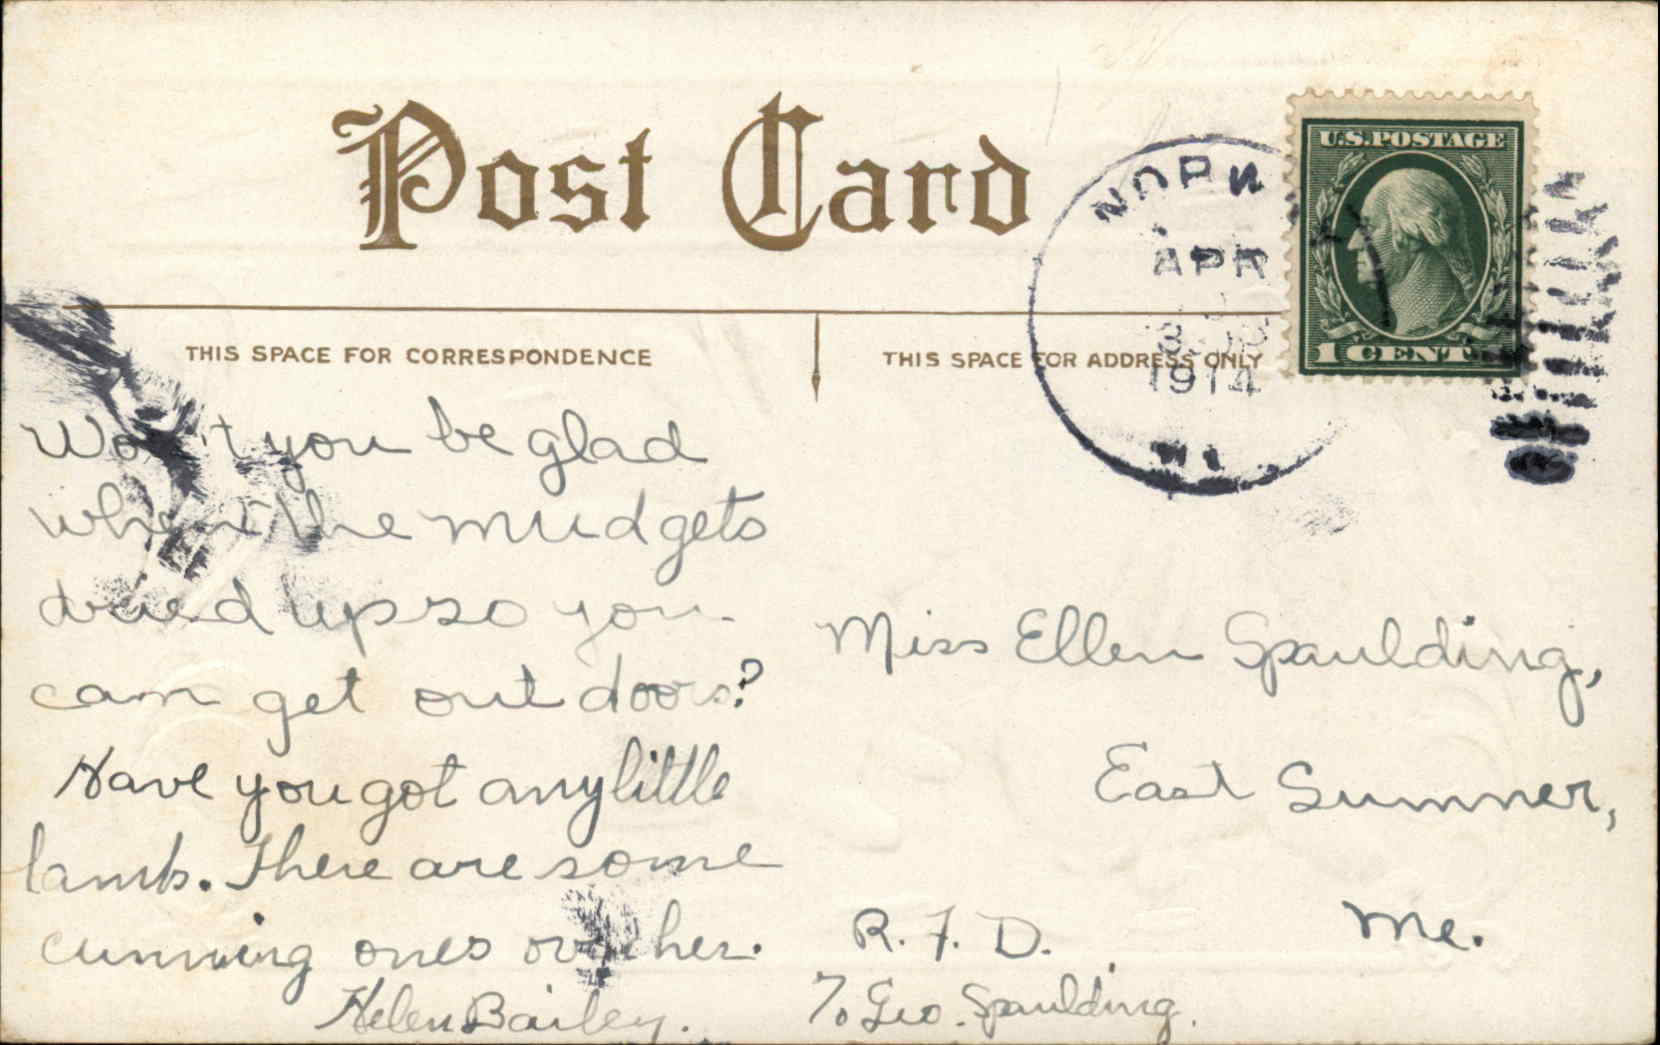 Post Card
THIS SPACE FOR CORRESPONDENCE
THIS SPACE FOR ADDRESS ONLY
NORW
APR
1914
U.S. POSTAGE
1 CENT
Won't you be glad
when the mud gets
dried up so you
can get out doors?
Have you got any little
lambs. There are some
cunning ones over her.
Helen Bailey.
Miss Ellen Spaulding,
East Sumner,
Me.
R. F. D.
℅ Geo. Spaulding.